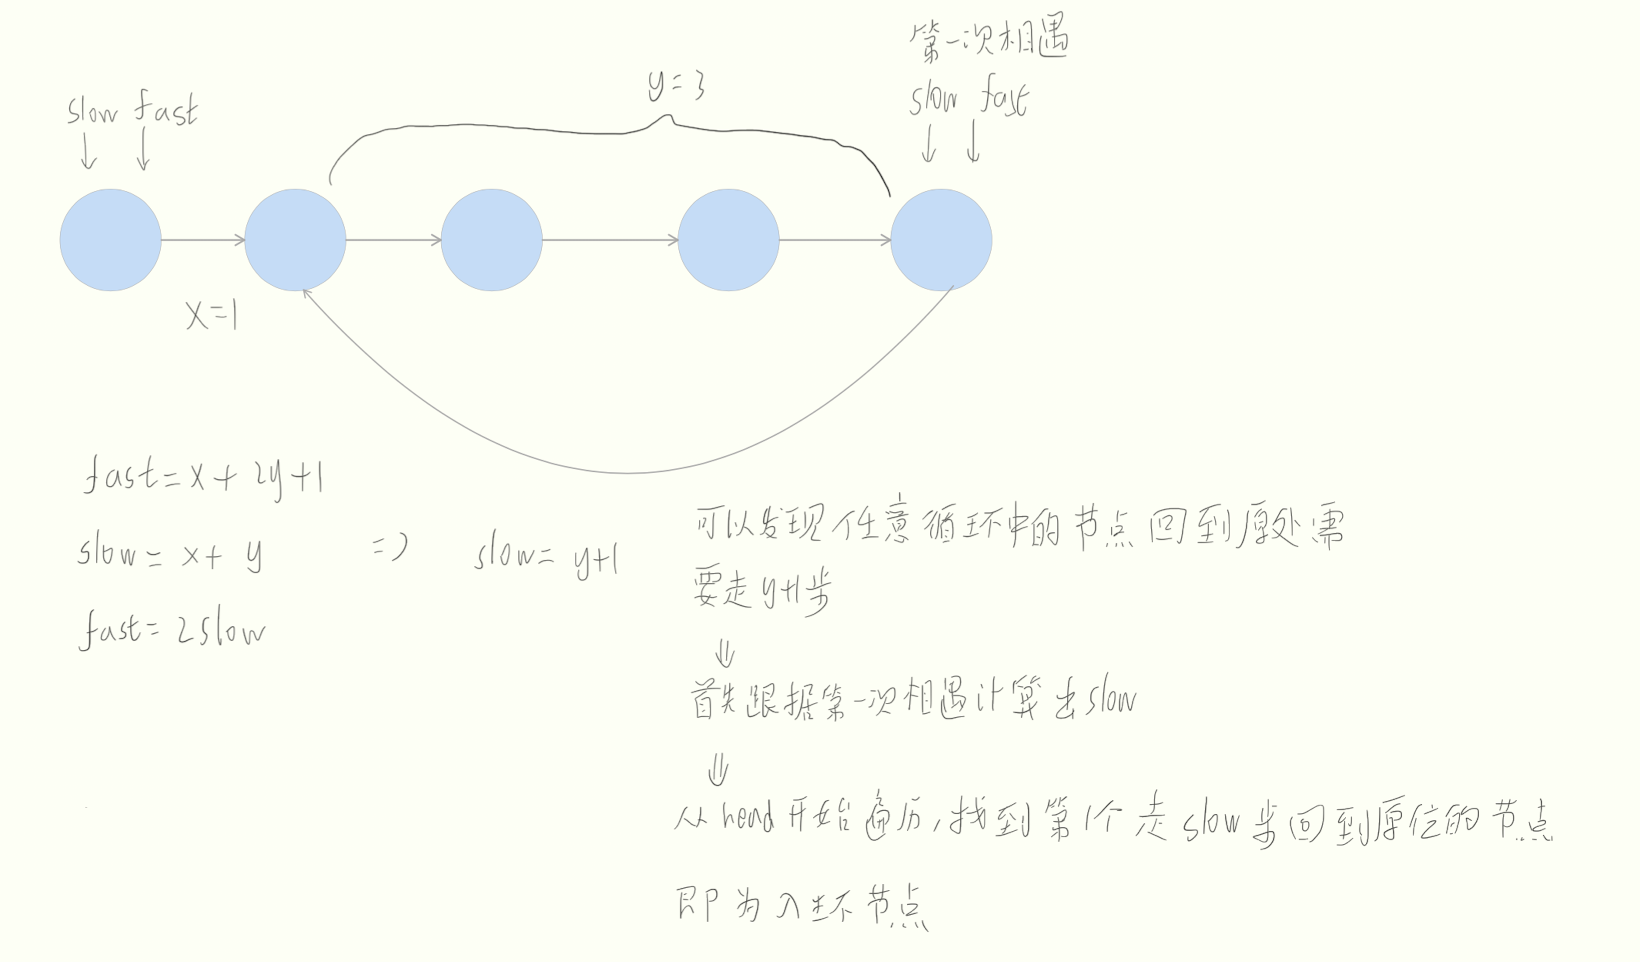 第一次相遇
slow fast
y=3
slow fast
x=1
fast=x+2y+1
slow=x+y
fast=2slow
=> slow=y+1
可以发现任意循环中的节点回到原处需
要走y+1步
⇓
首先跟据第一次相遇计算出slow
⇓
从head开始遍历,找到第1个走slow步回到原位的节点
即为入环节点